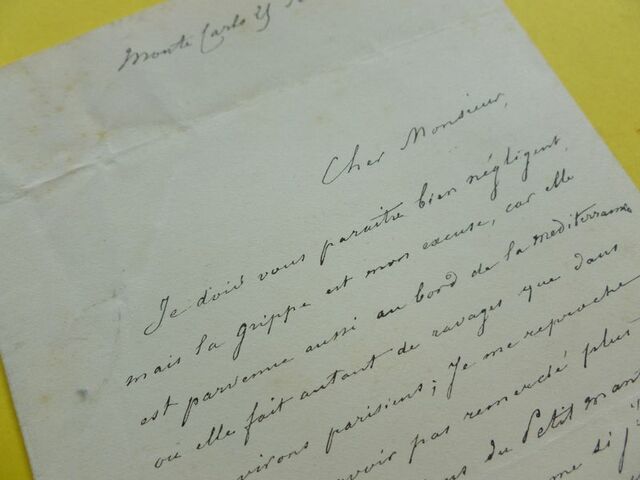 Monte Carlo 25
Cher Monsieur,
Je dois vous paraître bien négligent,
mais la grippe est mon excuse, car elle
est parvenue aussi au bord de la mediterranée
ou elle fait autant de ravages que dans
virons parisiens; Je me reproche
avoir pas remercié plus
du Petit man
me si j'